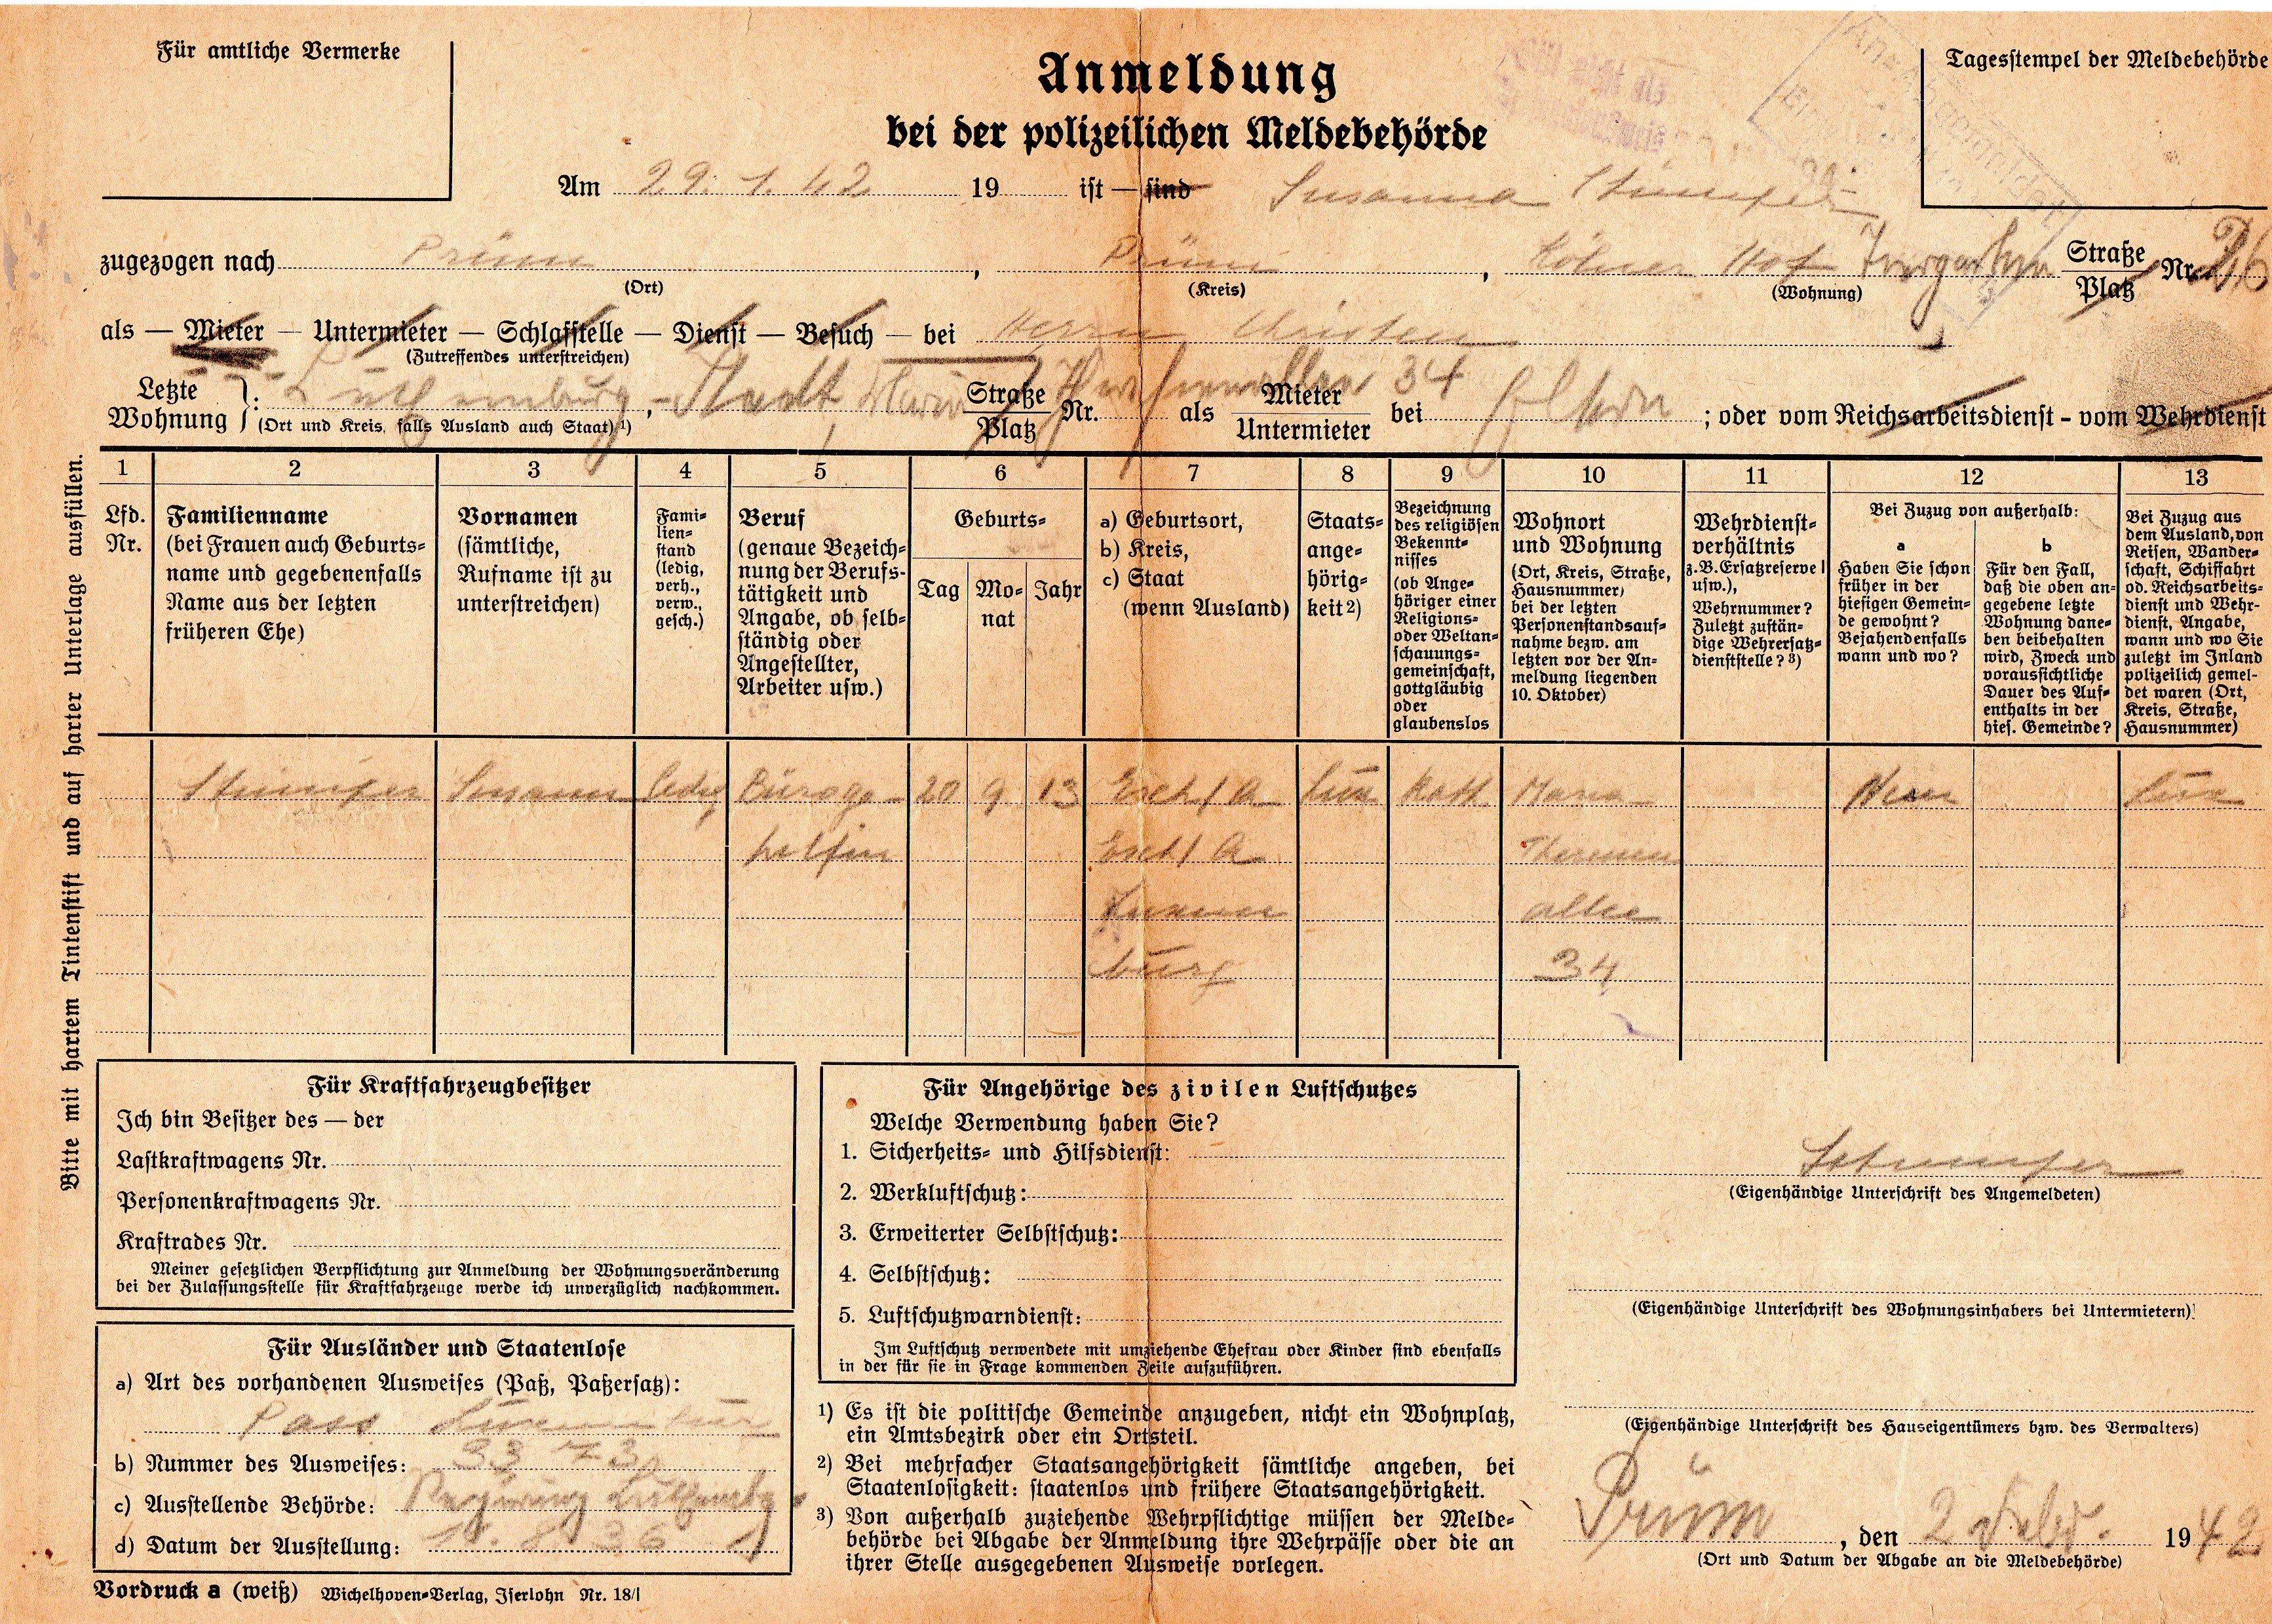 Für amtliche Vermerke
Anmeldung
bei der polizeilichen Meldebehörde
Tagesstempel der Meldebehörde
Am 29. 1. 42 19 ist — sind Susanna
zugezogen nach Prüm, Prüm, Kölner Hof Straße Platz Nr. 26
(Ort) (Kreis) (Wohnung)
als — Mieter — Untermieter — Schlafstelle — Dienst — Besuch — bei Herrn Christen
(Zutreffendes unterstreichen)
Letzte Wohnung : Lützemburg - Stadt, Maria Straße Platz 34 Nr. als Mieter Untermieter bei Eltern ; oder vom Reichsarbeitsdienst - vom Wehrdienst
(Ort und Kreis, falls Ausland auch Staat) 1)
Bitte mit hartem Tintenstift und auf harter Unterlage ausfüllen.
1 2 3 4 5 6 7 8 9 10 11 12 13
Lfd. Nr.
Familienname
(bei Frauen auch Geburts=
name und gegebenenfalls
Name aus der letzten
früheren Ehe)
Vornamen
(sämtliche,
Rufname ist zu
unterstreichen)
Fami=
lien=
stand
(ledig,
verh.,
verw.,
gesch.)
Beruf
(genaue Bezeich=
nung der Berufs=
tätigkeit und
Angabe, ob selb=
ständig oder
Angestellter,
Arbeiter usw.)
Geburts=
Tag Mo=nat Jahr
a) Geburtsort,
b) Kreis,
c) Staat
(wenn Ausland)
Staats=
ange=
hörig=
keit 2)
Bezeichnung
des religiösen
Bekennt=
nisses
(ob Ange=
höriger einer
Religions=
oder Weltan=
schauungs=
gemeinschaft,
gottgläubig
oder
glaubenslos
Wohnort
und Wohnung
(Ort, Kreis, Straße,
Hausnummer)
bei der letzten
Personenstandsauf=
nahme bezw. am
letzten vor der An=
meldung liegenden
10. Oktober)
Wehrdienst=
verhältnis
z. B. Ersatzreserve I
usw.),
Wehrnummer?
Zuletzt zustän=
dige Wehrersatz=
dienststelle? 3)
Bei Zuzug von außerhalb:
a
Haben Sie schon
früher in der
hiesigen Gemein=
de gewohnt?
Bejahendenfalls
wann und wo?
b
Für den Fall,
daß die oben an=
gegebene letzte
Wohnung dane=
ben beibehalten
wird, Zweck und
voraussichtliche
Dauer des Auf=
enthalts in der
hies. Gemeinde?
Bei Zuzug aus
dem Ausland, von
Reisen, Wander=
schaft, Schiffahrt
od. Reichsarbeits=
dienst und Wehr=
dienst, Angabe,
wann und wo Sie
zuletzt im Inland
polizeilich gemel=
det waren (Ort,
Kreis, Straße,
Hausnummer)
ledig Büroge- 20 9 13 Esch / A Lux Kath Maria Nein Lux
helfin Esch / A Theresien
Luxem allee
burg 34
Für Kraftfahrzeugbesitzer
Ich bin Besitzer des — der
Lastkraftwagens Nr.
Personenkraftwagens Nr.
Kraftrades Nr.
Meiner gesetzlichen Verpflichtung zur Anmeldung der Wohnungsveränderung
bei der Zulassungsstelle für Kraftfahrzeuge werde ich unverzüglich nachkommen.
Für Ausländer und Staatenlose
a) Art des vorhandenen Ausweises (Paß, Paßersatz):
Pass
b) Nummer des Ausweises: 33 73
c) Ausstellende Behörde:
d) Datum der Ausstellung: 8 36
Vordruck a (weiß) Wichelhoven=Verlag, Iserlohn Nr. 18/I
Für Angehörige des zivilen Luftschutzes
Welche Verwendung haben Sie?
1. Sicherheits= und Hilfsdienst:
2. Werkluftschutz:
3. Erweiterter Selbstschutz:
4. Selbstschutz:
5. Luftschutzwarndienst:
Im Luftschutz verwendete mit umziehende Ehefrau oder Kinder sind ebenfalls
in der für sie in Frage kommenden Zeile aufzuführen.
1) Es ist die politische Gemeinde anzugeben, nicht ein Wohnplatz,
ein Amtsbezirk oder ein Ortsteil.
2) Bei mehrfacher Staatsangehörigkeit sämtliche angeben, bei
Staatenlosigkeit: staatenlos und frühere Staatsangehörigkeit.
3) Von außerhalb zuziehende Wehrpflichtige müssen der Melde=
behörde bei Abgabe der Anmeldung ihre Wehrpässe oder die an
ihrer Stelle ausgegebenen Ausweise vorlegen.
(Eigenhändige Unterschrift des Angemeldeten)
(Eigenhändige Unterschrift des Wohnungsinhabers bei Untermietern)
(Eigenhändige Unterschrift des Hauseigentümers bzw. des Verwalters)
Prüm, den 2 Febr. 1942
(Ort und Datum der Abgabe an die Meldebehörde)